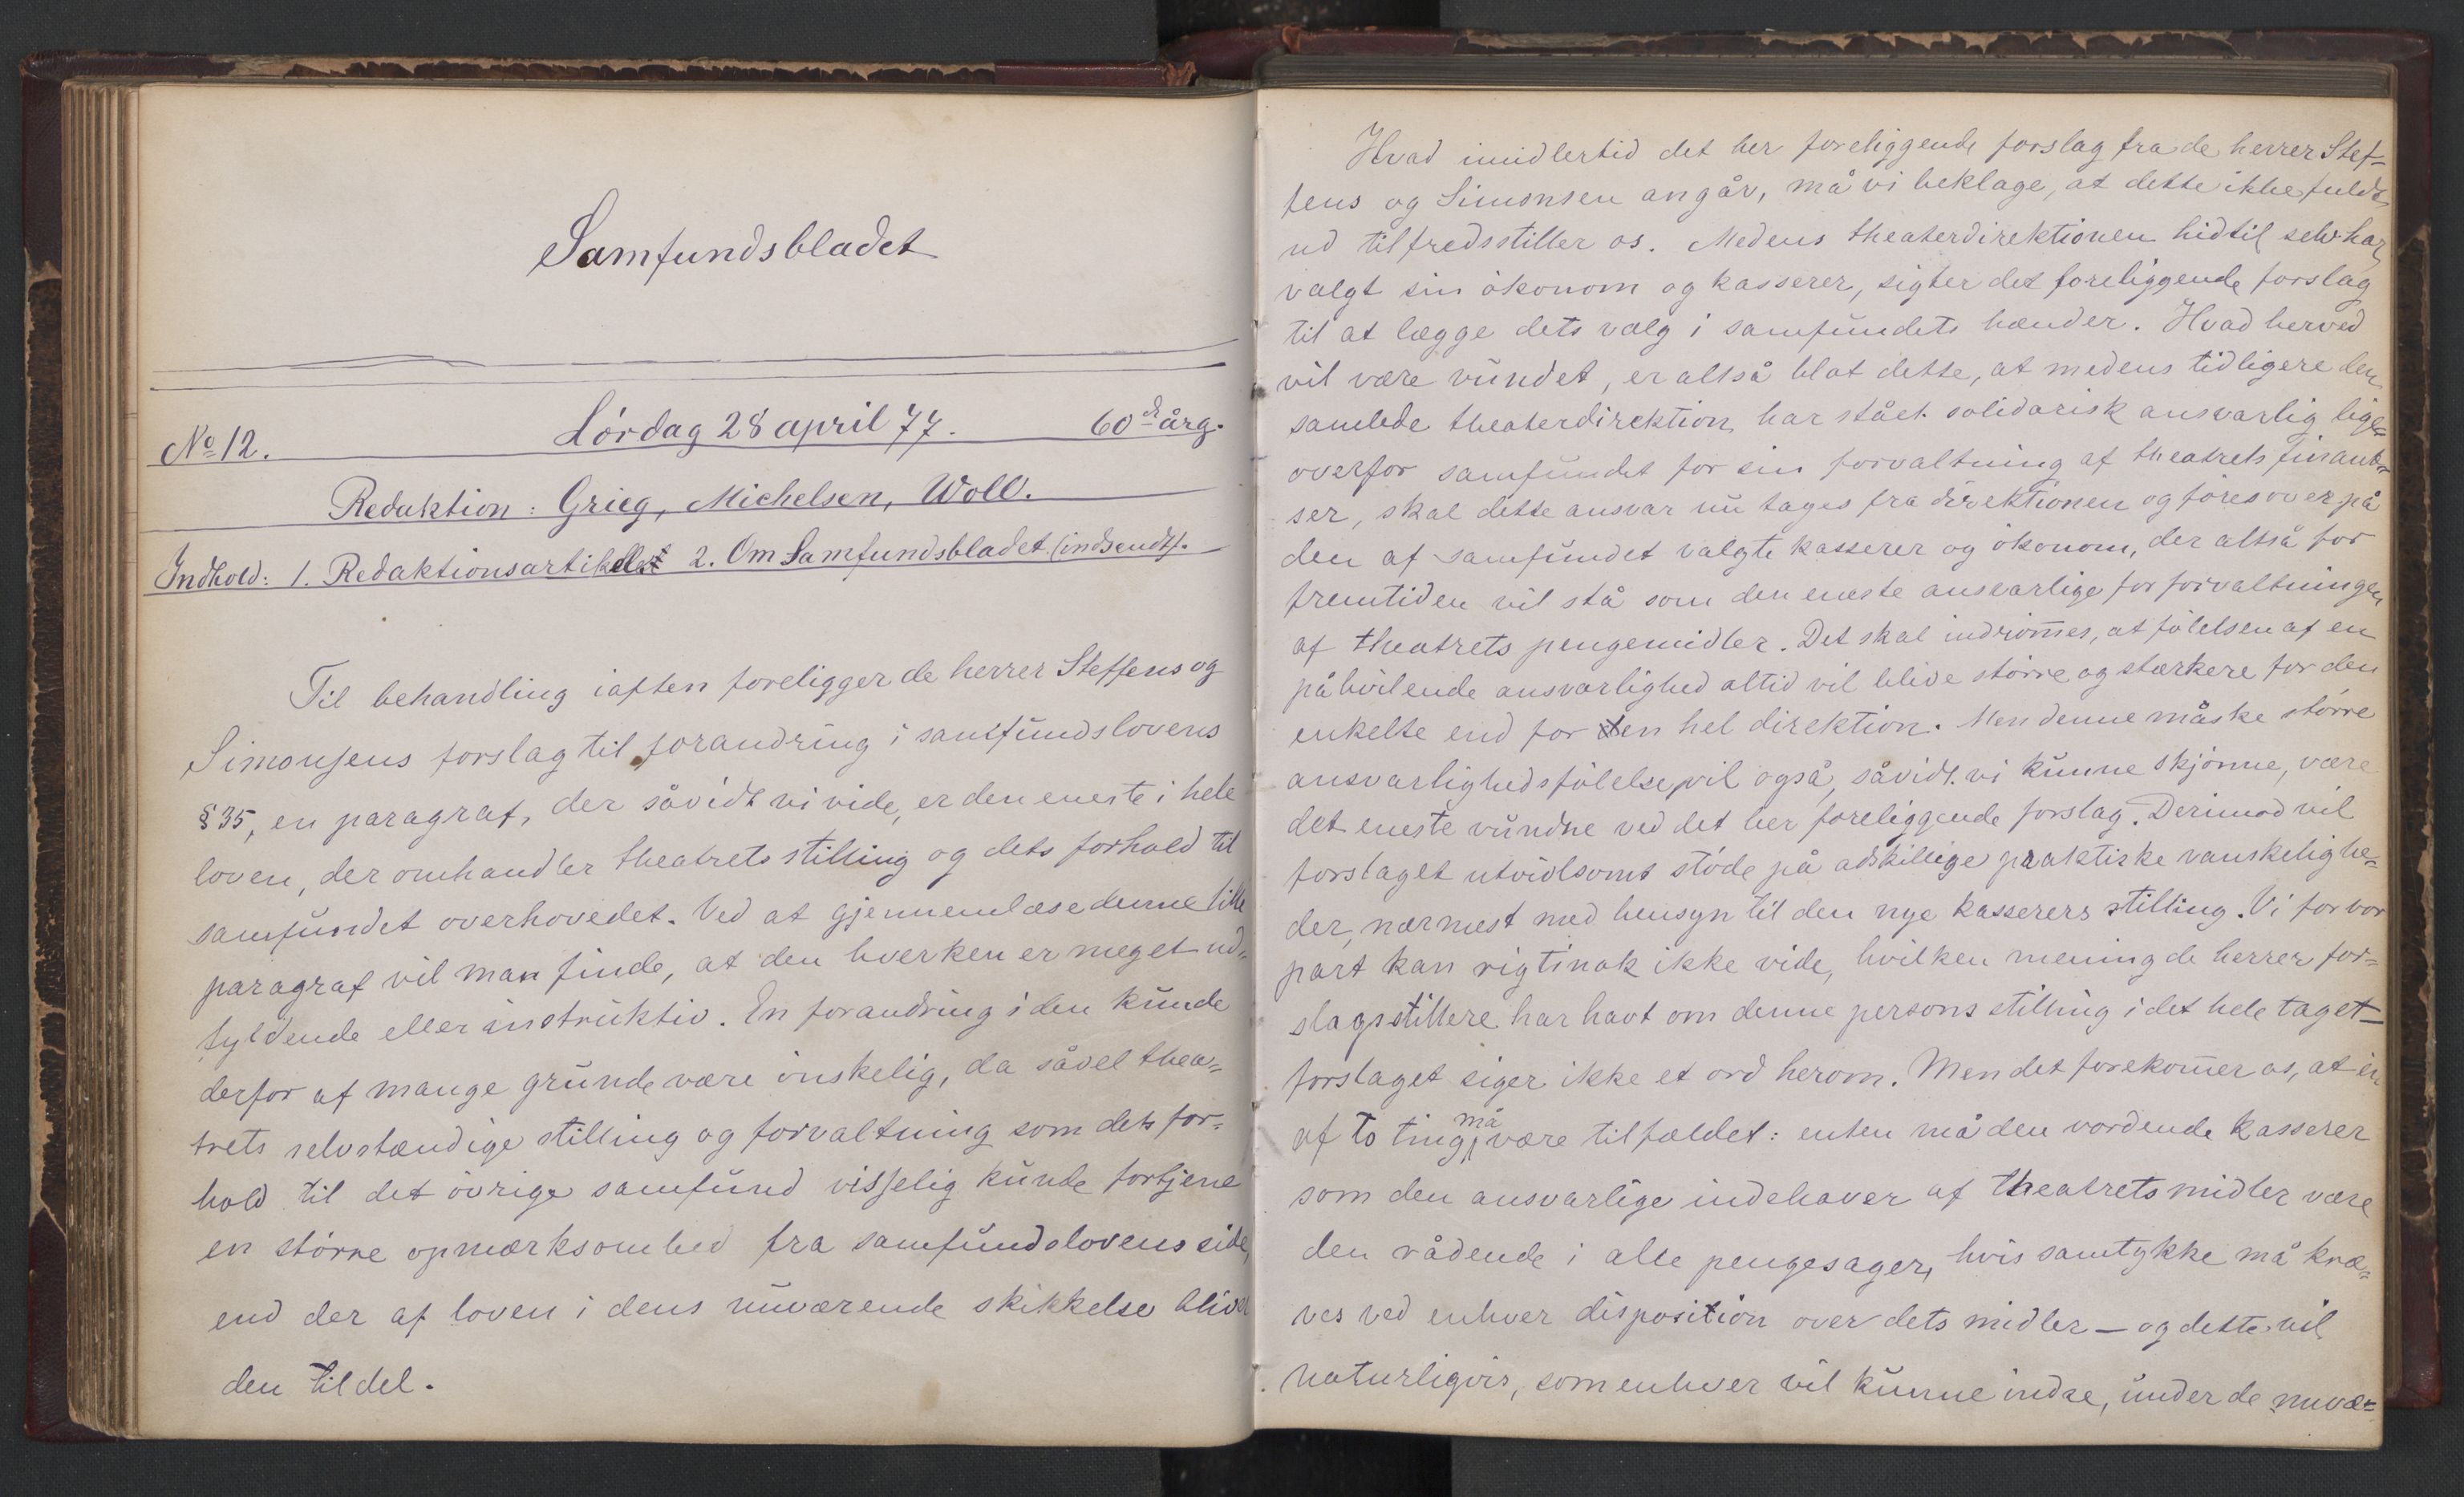 Samfundsbladet
No 12. Lördag 28 april 77. 60de årg.
Redaktion: Grieg, Michelsen, Woll.
Indhold: 1. Redaktionsartikel 2. Om Samfundsbladet (indsendt).
Til behandling iaften foreligger de herrer Steffens og
Simonsens forslag til forandring i samfundslovens
§ 35, en paragraf, der såvidt vi vide, er den eneste i hele
loven, der omhandler theatrets stilling og dets forhold til
samfundet overhovedet. Ved at gjennemlæse denne lille
paragraf vil man finde, at den hverken er meget ud-
fyldende eller instruktiv. En forandring i den kunde
derfor af mange grunde være önskelig, da såvel thea-
trets selvstændige stilling og forvaltning som dets for-
hold til det övrige samfund visselig kunde fortjene
en större opmærksomhed fra samfundslovens side,
end der af loven i dens nuværende skikkelse bliver
den til del.
Hvad imidlertid det her foreliggende forslag fra de herrer Stef-
fens og Simonsen angår, må vi beklage, at dette ikke fuldt
ud tilfredsstiller os. Medens theaterdirektionen hidtil selv har
valgt sin ökonom og kasserer, sigter det foreliggende forslag
til at lægge dets valg i samfundets hænder. Hvad herved
vil være vundet, er altså blot dette, at medens tidligere den
samlede theaterdirektion har stået solidarisk ansvarlig lige-
overfor samfundet for sin forvaltning af theatrets finant-
ser, skal dette ansvar nu tages fra direktionen og föres over på
den af samfundet valgte kasserer og ökonom, der altså for
fremtiden vil stå som den eneste ansvarlige for forvaltningen
af theatrets pengemidler. Det skal indrömmes, at fölelsen af en
påhvilende ansvarlighed altid vil blive större og stærkere for den
enkelte end for en hel direktion. Men denne måske större
ansvarlighedsfölelse vil også, såvidt vi kunne skjönne, være
det eneste vundne ved det her foreliggende forslag. Derimod vil
forslaget utvivlsomt stöde på adskillige praktiske vanskelighe-
der, nærmest med hensyn til den nye kasserers stilling. Vi for vor
part kan rigtinok ikke vide, hvilken mening de herrer for-
slagsstillere har havt om denne persons stilling i det hele taget –
forslaget siger ikke et ord herom. Men det forekommer os, at én
af to ting må være tilfældet: enten må den vordende kasserer
som den ansvarlige indehaver af theatrets midler være
den rådende i alle pengesager, hvis samtykke må kræ-
ves ved enhver disposition over dets midler – og dette vil
naturligvis, som enhver vil kunne indse, under de nuvæ-